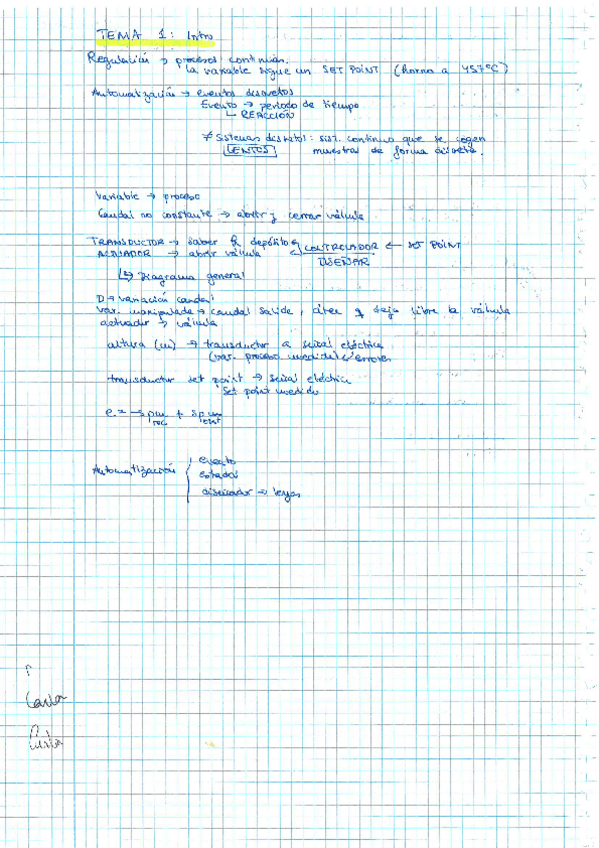 TEMA 1: Intro
Regulación → procesos continuos.
La variable sigue un SET POINT (horno a 457ºC)
Automatización → eventos discretos
Evento → periodo de tiempo
↳ REACCIÓN
≠ Sistemas discretos: sist. continuo que se cogen
LENTOS muestras de forma discreta.
Variable → proceso
Caudal no constante → abrir y cerrar válvula
TRANSDUCTOR → saber depósito CONTROLADOR ← SET POINT
ACTUADOR → abrir válvula DISEÑAR
↳ Diagrama general
D → variación caudal
var. manipulada → caudal salida, área q deja libre la válvula
actuador → válvula
altura (m) → transductor a señal eléctrica
(var. proceso medida) errores
transductor set point → señal eléctrica
set point medido
e = -spm + spm
Automatización { evento
estados
diseñador → leyes
Carlos